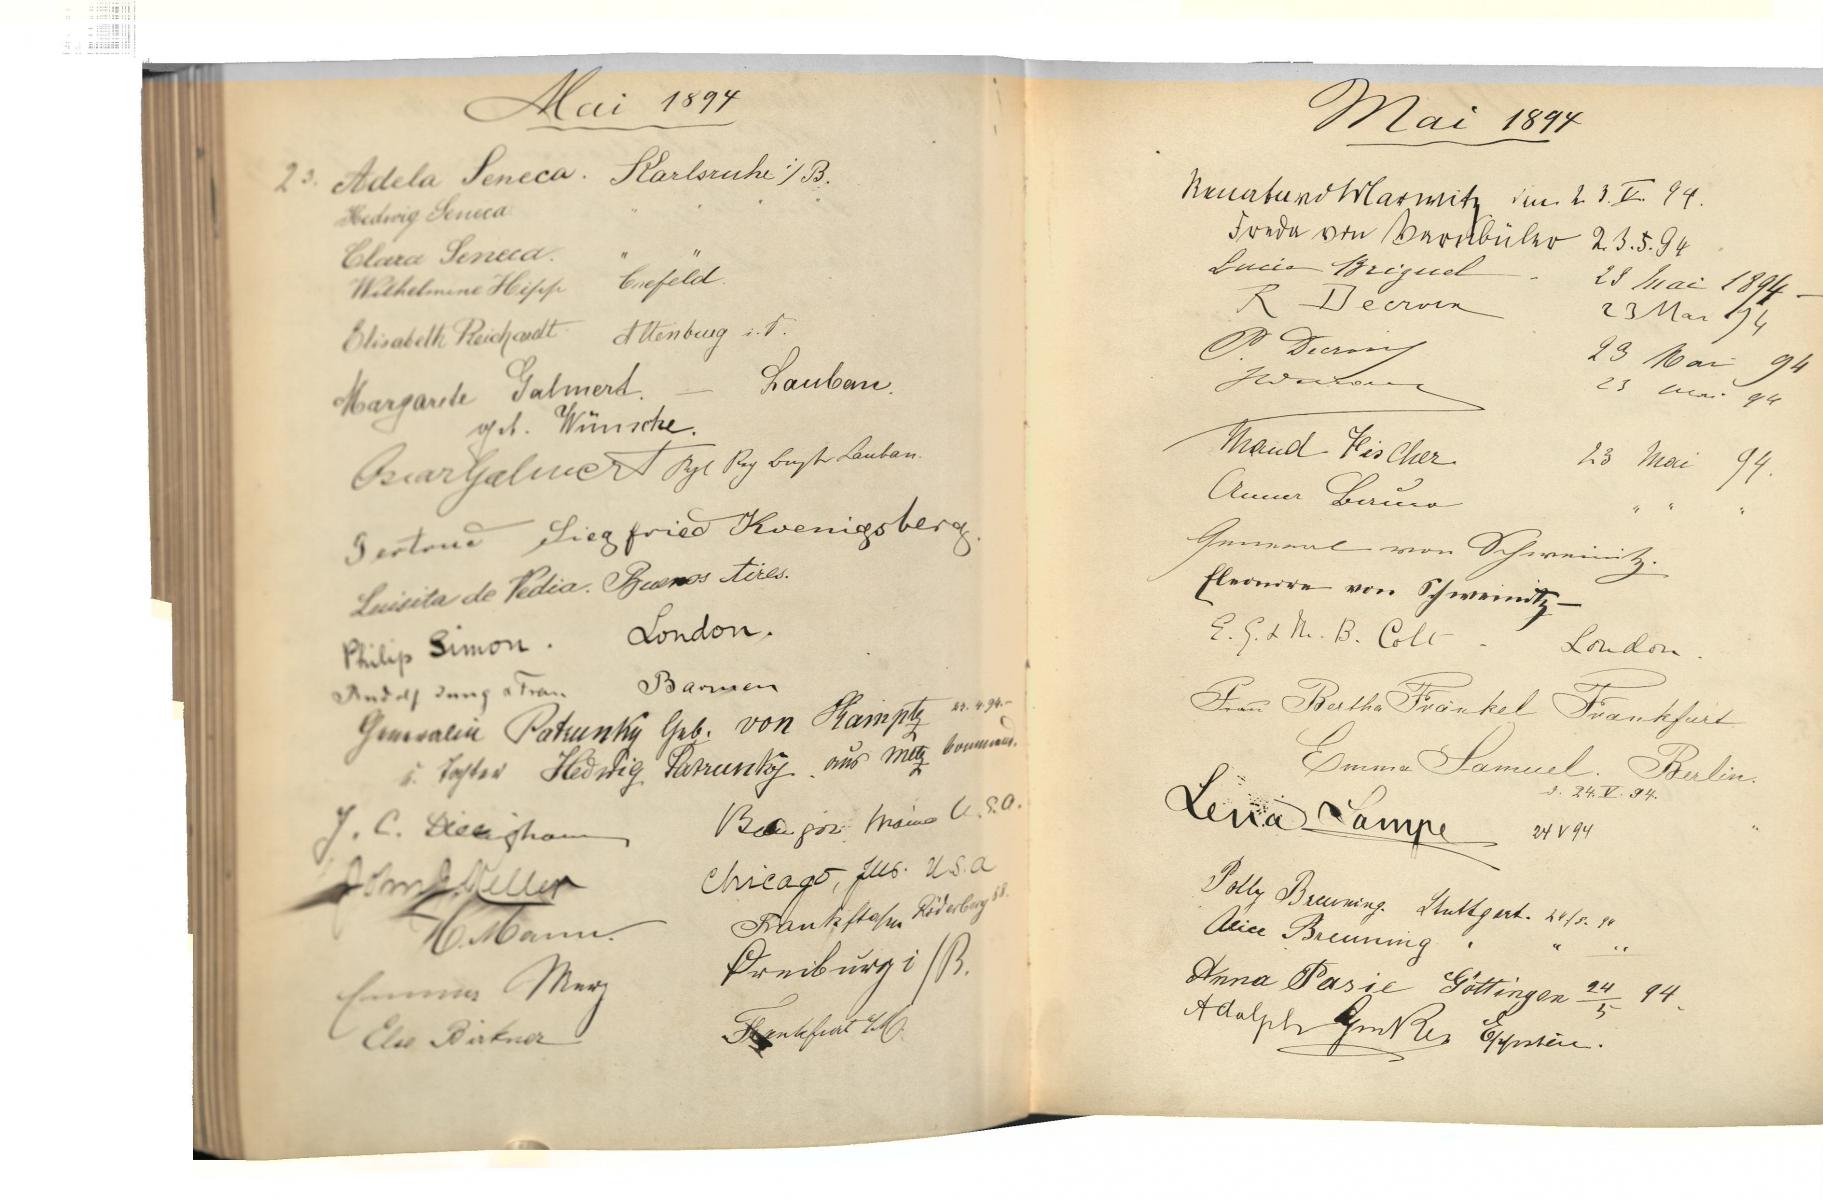 Mai 1894
23. Adela Seneca. Karlsruhe i/B.
Hedwig Seneca " " "
Clara Seneca. " "
Wilhelmine Hipp Crefeld.
Elisabeth Reichardt Altenburg i. T.
Margarete Galmert. — Lauban.
geb. Wünsche.
Oscar Galmert Lauban.
Gertrud Siegfried Koenigsberg.
Luisita de Vedia. Buenos Aires.
Philip Simon. London.
Rudolf Jung & Frau Barmen
Generalin Patrunky Geb. von Kamptz
u. Tochter Hedwig Patrunky. aus Metz
J. C. Bangor Maine U.S.A.
Chicago, Ills. U.S.A
H. Mann. Röderberg 88.
Emma Merz Freiburg i/B.
Else Birkner Frankfurt a/M.
Mai 1894
von Marwitz den 23. V. 94.
von Varnbüler 23.5.94
Lucie 23 Mai 1894 —
R Decroix 23 Mai 94
P. 23 Mai 94
23 Mai 94
Maud Fischer 23 Mai 94.
" " "
General von Schweinitz.
Eleonore von Schweinitz —
E. G. & M. B. Colt - London.
Frau Bertha Fränkel Frankfurt
Emma Samuel. Berlin.
d. 24. V. 94.
Lena Lampe 24 V 94
Polly Breuning. Stuttgart. 24/5. 94
Alice Breuning " " "
Anna Pasie Göttingen 24/5 94.
Adolph Eppstein.